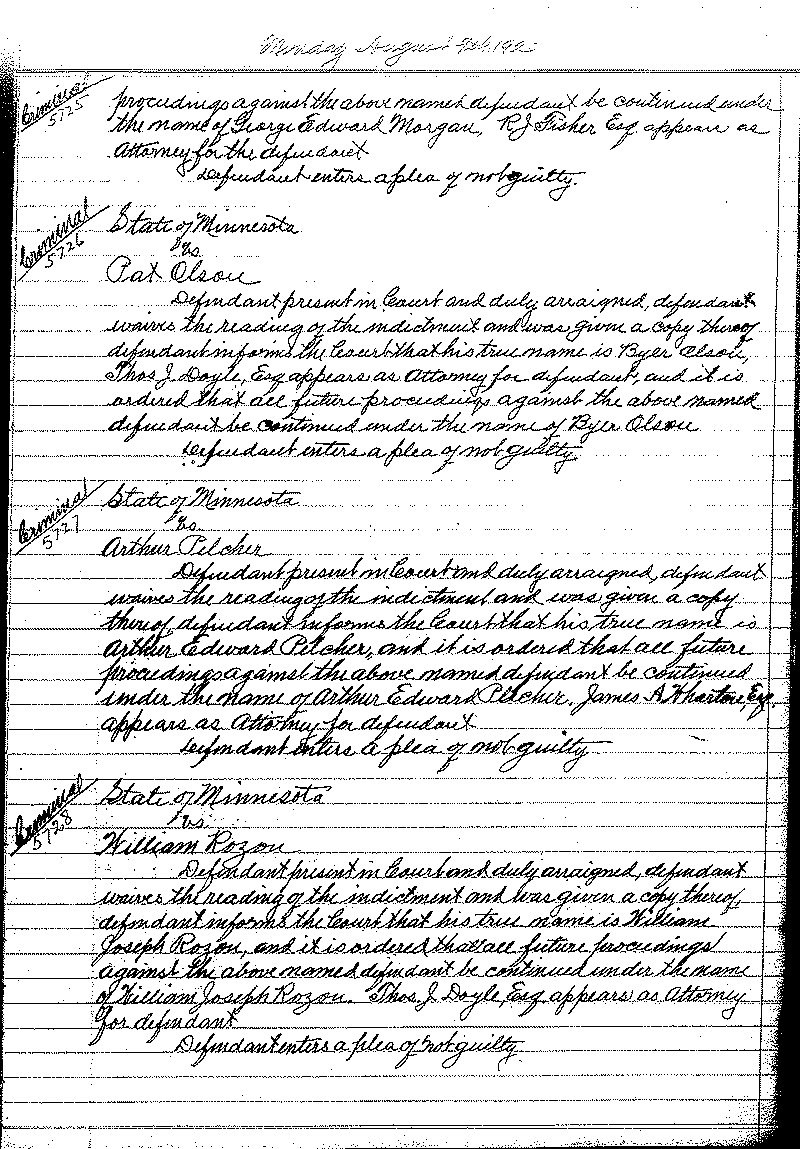 Monday August
Criminal
5725
proceedings against the above named defendant be continued under
the name of George Edward Morgan, R.J. Fisher Esq. appears as
Attorney for the defendant
Defendant enters a plea of not guilty.
Criminal
5726
State of Minnesota
vs.
Pat Olson
Defendant present in Court and duly arraigned, defendant
waives the reading of the indictment and was given a copy thereof
defendant informs the Court that his true name is Byer Olson,
Thos. J. Doyle, Esq appears as Attorney for defendant, and it is
ordered that all future proceedings against the above named
defendant be continued under the name of Byer Olson
Defendant enters a plea of not guilty.
Criminal
5727
State of Minnesota
vs.
Arthur Pelcher
Defendant present in Court and duly arraigned, defendant
waives the reading of the indictment and was given a copy
thereof defendant informs the Court that his true name is
Arthur Edward Pelcher, and it is ordered that all future
proceedings against the above named defendant be continued
under the name of Arthur Edward Pelcher. James A. Wharton, Esq.
appears as Attorney for defendant
Defendant enters a plea of not guilty
Criminal
5728
State of Minnesota
vs.
William Rozon
Defendant present in Court and duly arraigned, defendant
waives the reading of the indictment and was given a copy thereof,
defendant informs the Court that his true name is William
Joseph Rozon, and it is ordered that all future proceedings
against the above named defendant be continued under the name
of William Joseph Rozon. Thos. J. Doyle, Esq appears as Attorney
for defendant
Defendant enters a plea of not guilty